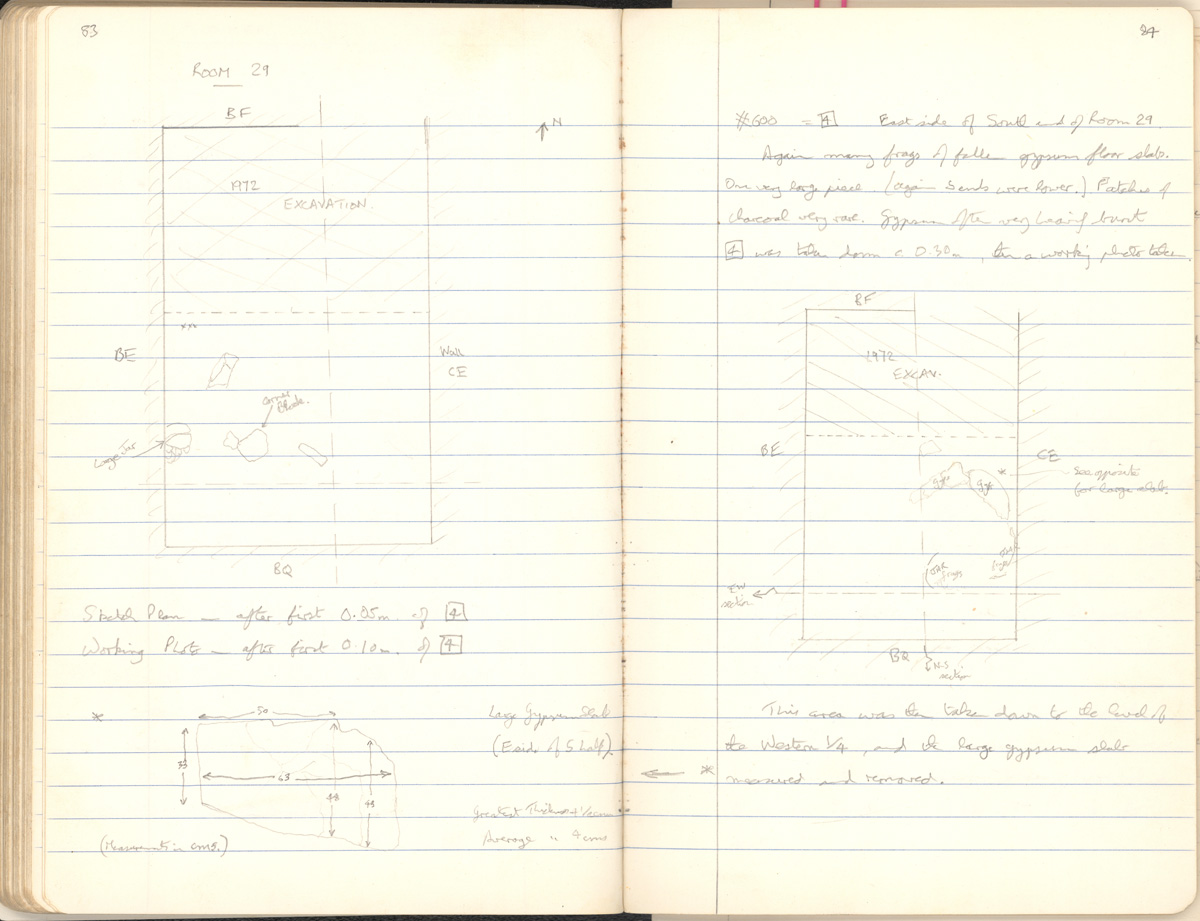 83
ROOM 29
BF
N
1972
EXCAVATION.
xx
BE
Wall
CE
Corner
Block.
Large Jar
BQ
Sketch Plan — after first 0.05m. of 4
Working Photo — after first 0.10m. of 4
*
50
33
63
48
43
(Measurements in cms.)
Large Gypsum Slab
(E side of S half).
Greatest Thickness 4 1/2 cms
Average " 4 cms
84
#600 = 4 East side of South end of Room 29
Again many frags of fallen gypsum floor slabs.
One very large piece. (Again Sends were lower.) Patches of
charcoal very rare. Gypsum often very burnt
4 was taken down c 0.30m, then a working photo taken.
BF
1972
EXCAV.
BE
CE
See opposite
for large slab.
Gyps
Gyps
*
JAR
frags
EW
section
BQ
N-S
section
This area was then taken down to the level of
the Western 1/4, and the large gypsum slab
* measured and removed.